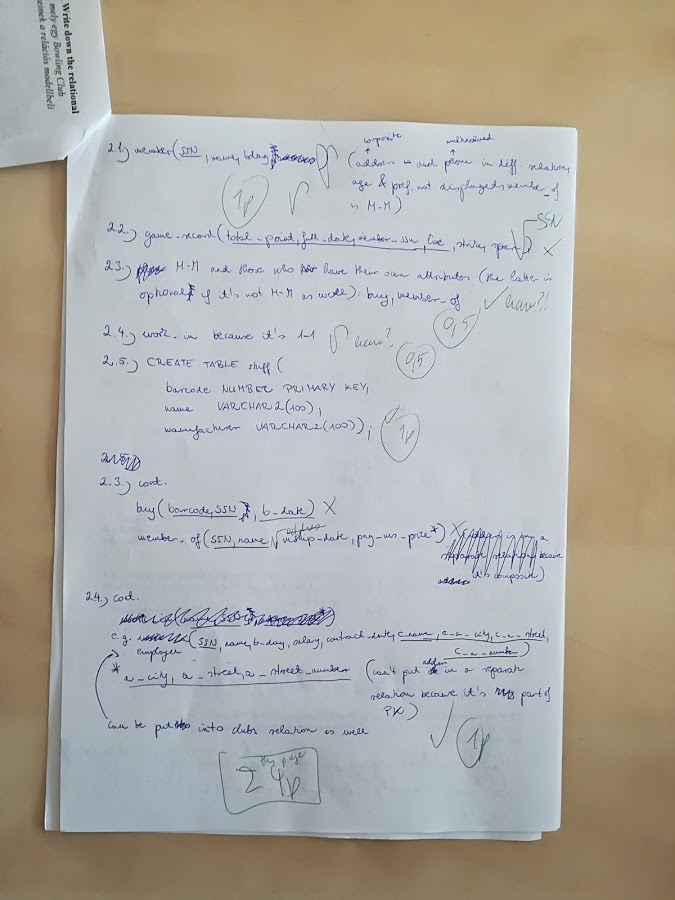 Write down the relational
mely egy Bowling Club
elmek a relációs modellbeli
composite multivalued
2.1.) member(SSN, name, bday) (address and phone in diff. relation,
age & pref. not displayed, member_of
is M-M)
1p
2.2.) game_record(total_point, full_date, member_ssn, line, strike, spare) SSN X
2.3.) M-M and those who have their own attributes (the latter is
optional if it's not M-M as well): buy, member_of
0,5
2.4.) work_in because it's 1-1
0,5
2.5.) CREATE TABLE stuff (
barcode NUMBER PRIMARY KEY,
name VARCHAR2(100),
manufacturer VARCHAR2(100));
1p
2.3.) cont.
buy(barcode, SSN, b-date) X
member_of(SSN, name, m-ship-date, pay_ms_price*) X
separate relation because
it's composite)
2.4.) cont.
e.g. employee (SSN, name, b-day, salary, contract-date, c-name, c-a-city, c-a-street,
c-a-number)
* a-city, a-street, a-street-number (can't put address in a separate
relation because it's part of
PK)
can be put into clubs relation as well
1p
this page
Σ 4p